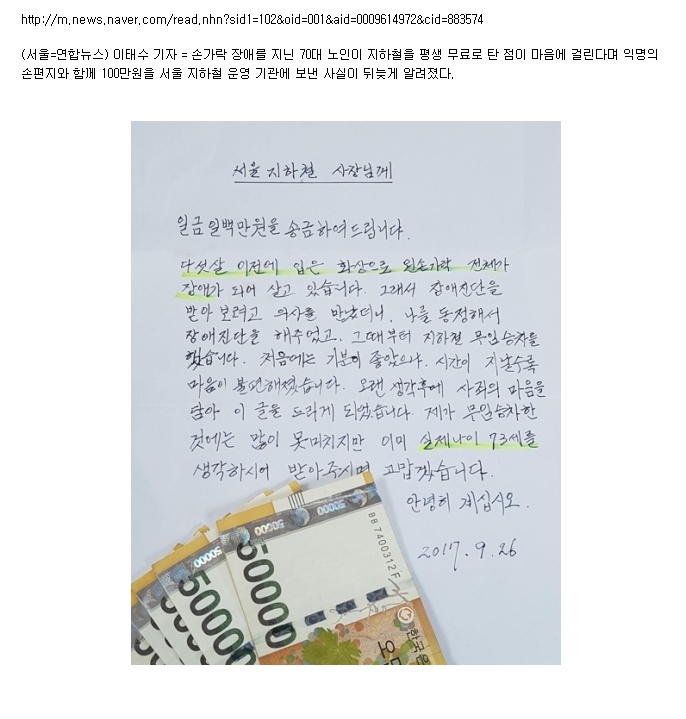 http://m.news.naver.com/read.nhn?sid1=102&oid=001&aid=0009614972&cid=883574
(서울=연합뉴스) 이태수 기자 = 손가락 장애를 지닌 70대 노인이 지하철을 평생 무료로 탄 점이 마음에 걸린다며 익명의
손편지와 함께 100만원을 서울 지하철 운영 기관에 보낸 사실이 뒤늦게 알려졌다.
서울 지하철 사장님께
일금 일백만원을 송금하여드립니다.
다섯살 이전에 입은 화상으로 왼손가락 전체가
장애가 되어 살고 있습니다. 그래서 장애진단을
받아 보려고 의사를 만났더니, 나를 동정해서
장애진단을 해주었고, 그때부터 지하철 무임승차를
했습니다. 처음에는 기분이 좋았으나, 시간이 지날수록
마음이 불편해졌습니다. 오랜 생각후에 사죄의 마음을
담아 이 글을 드리게 되었습니다. 제가 무임승차한
것에는 많이 못미치지만 이미 실제나이 73세를
생각하시어 받아주시면 고맙겠습니다.
안녕히 계십시오.
2017. 9. 26
50000
50000
50000
50000
50000
50000
BB7400312F
한국은
오만